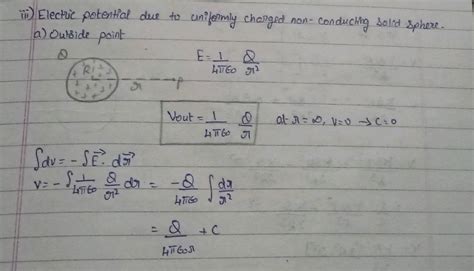 iii) Electric potential due to uniformly charged non-conducting solid sphere.
a) Outside point
Q
R
r
P
E = 1/4πε0 Q/r²
Vout = 1/4πε0 Q/r
at r = ∞, V=0 → C=0
∫dv = -∫E⃗. dr⃗
V = -∫ 1/4πε0 Q/r² dr = -Q/4πε0 ∫ dr/r²
= Q/4πε0r + C